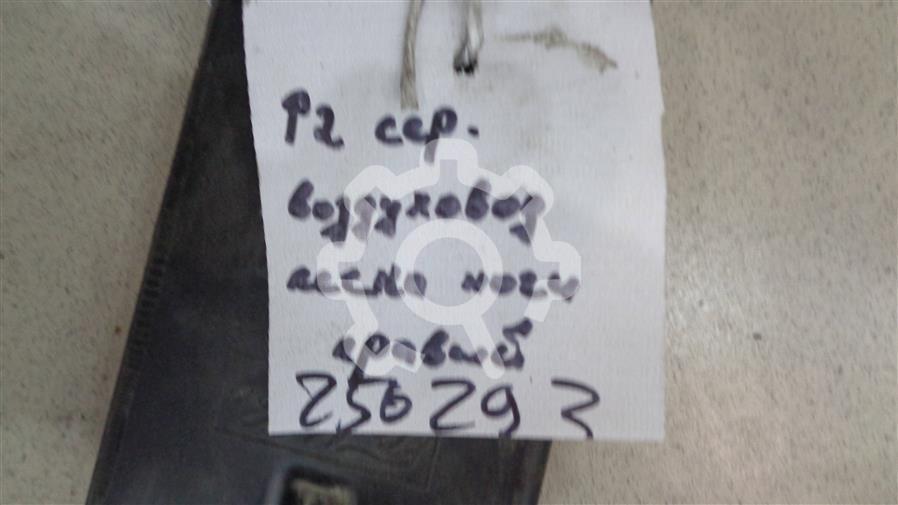 Р2 сер.
воздуховод
месмо ногу
правый
250293